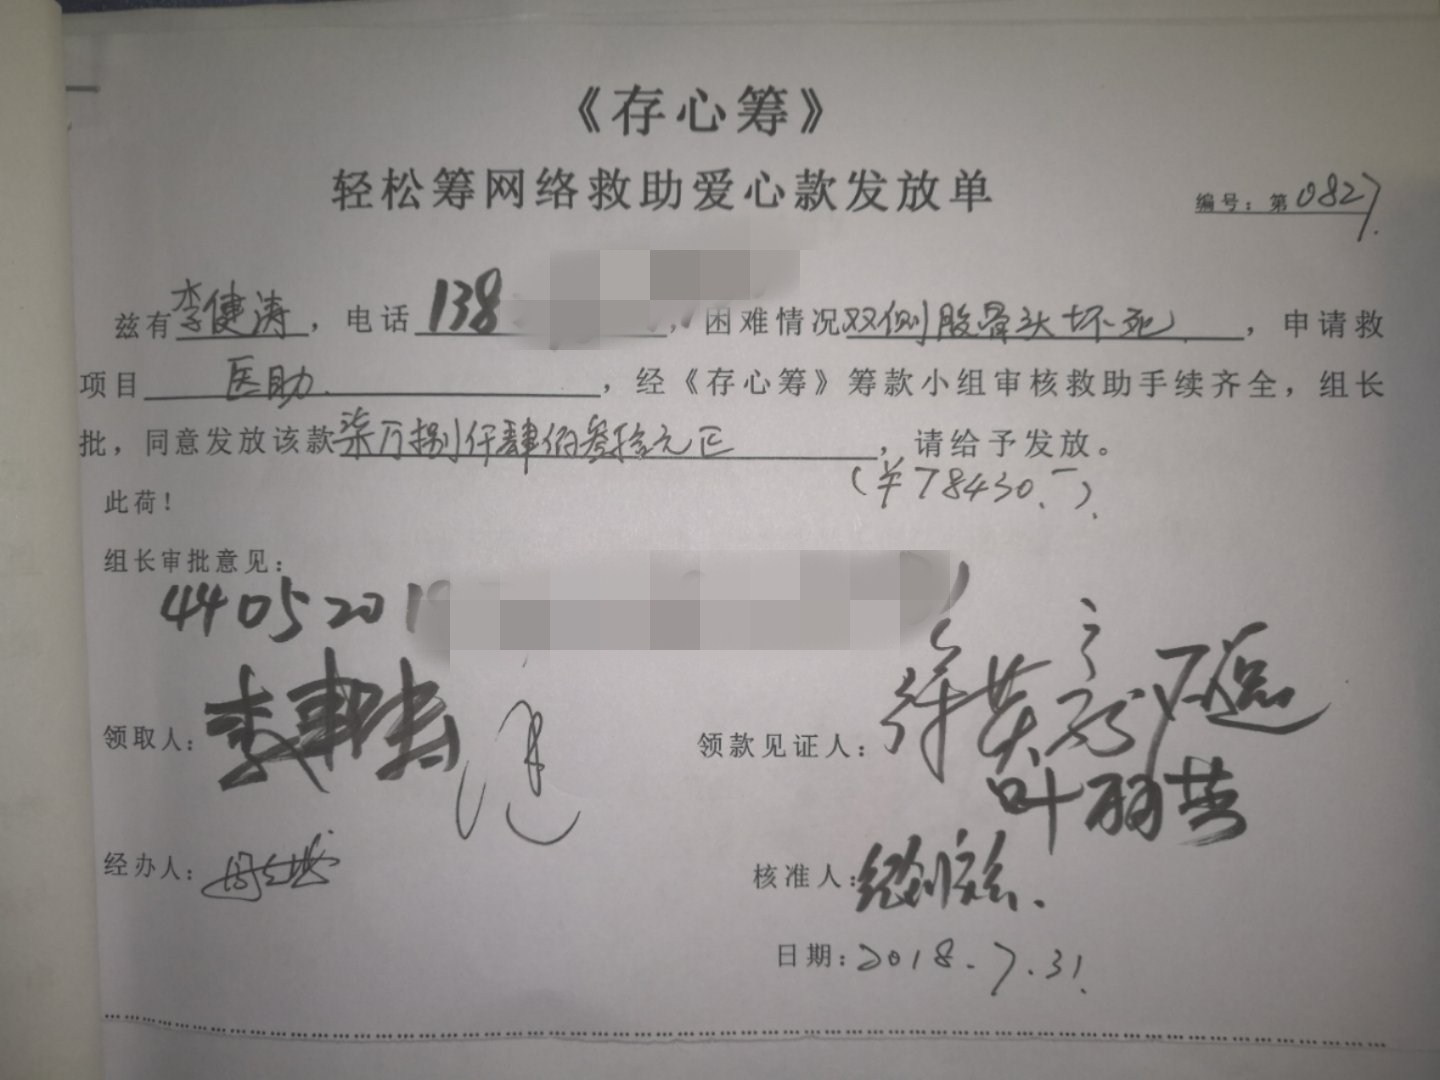 《存心筹》
轻松筹网络救助爱心款发放单
编号：第0827
兹有李健涛，电话138，困难情况双侧股骨头坏死，申请救
项目医助，经《存心筹》筹款小组审核救助手续齐全，组长
批，同意发放该款柒万捌仟肆佰叁拾元正，请给予发放。
（￥78430.-）
此荷！
组长审批意见：
4405201
领取人：李健涛
领款见证人：
叶丽芸
经办人：
核准人：
日期：2018.7.31.